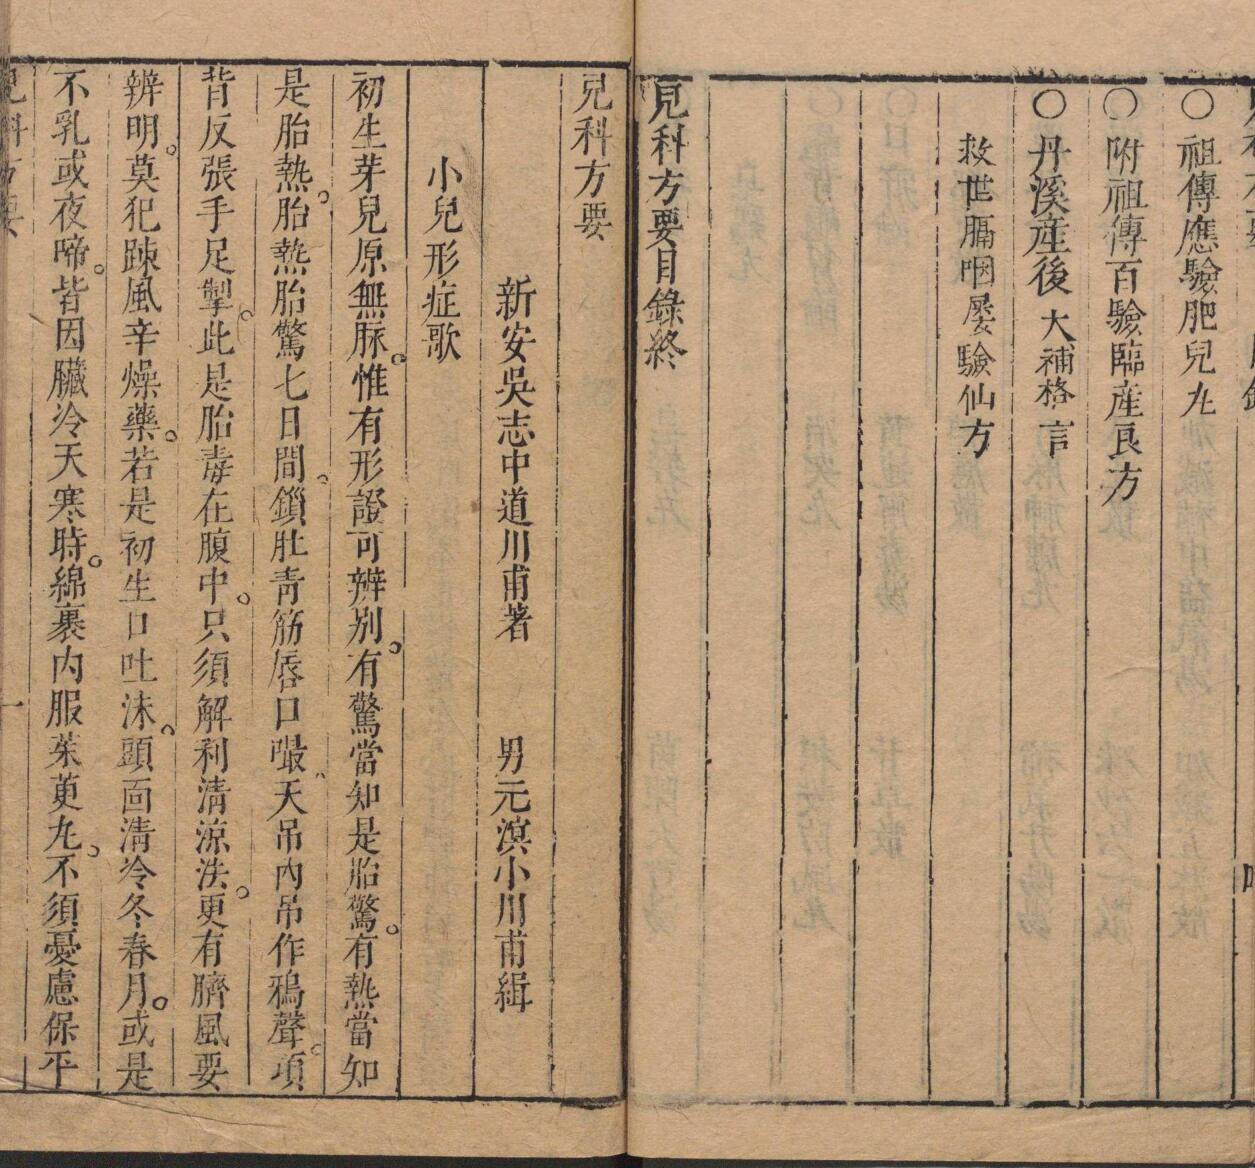 ○祖傳應驗肥兒丸
○附祖傳百驗臨産良方
○丹溪産後大補格言
救世膈咽屡驗仙方
兒科方要目錄終
兒科方要
新安吳志中道川甫著 男元溟小川甫緝
小兒形症歌
初生芽兒原無脉。惟有形證可辨别。有驚當知是胎驚。有熱當知
是胎熱。胎熱胎驚七日間。鎖肚青筋唇口嘬。天吊内吊作鴉聲。項
背反張手足掣。此是胎毒在腹中。只須解利清涼法。更有臍風要
辨明。莫犯踈風辛燥藥。若是初生口吐沬。頭面清冷冬春月。或是
不乳或夜啼。皆因臟冷天寒時。綿裹内服茱萸丸。不須憂慮保平
兒科方要
一